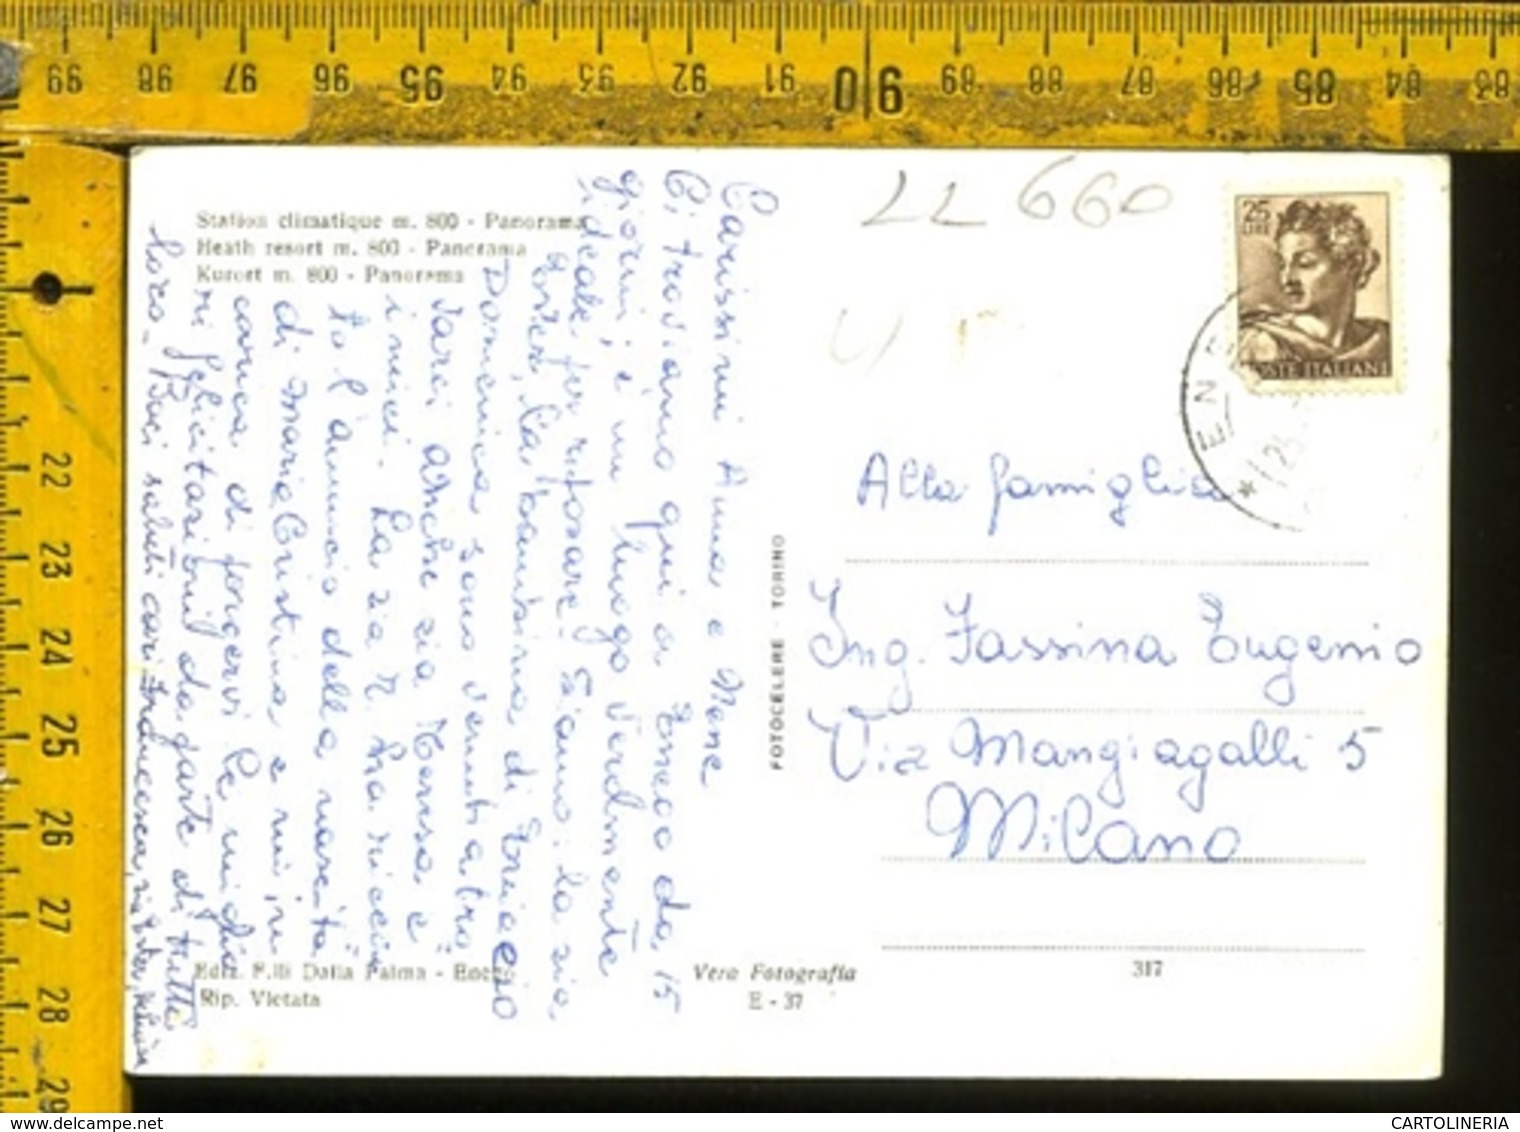 99 98 97 96 95 94 93 92 91 90 89 88 87 86 85 84 83
22
23
24
25
26
27
28
29
Station climatique m. 800 - Panorama
Heath resort m. 800 - Panorama
Kurort m. 800 - Panorama
LL 660
25
LIRE
POSTE ITALIANE
Carissimi Anna e Nene
Ci troviamo qui a Enego da 15
giorni; è un luogo veramente
ideale per riposare. Siamo: la zia
Ester, la bambina di Ernesto
Domenica sono venuti a tro
varci anche zia Teresa e
i nuci. La zia
to l'annuncio della nascita
di Maria Cristina e mi in
carica di porgervi le miglio
ri felicitazioni da parte di tutti
loro - Baci saluti cari Francesca, zia Ester,
FOTOCELERE - TORINO
Alla famiglia
Ing. Fassina Eugenio
Via Mangiagalli 5
Milano
Ediz. F.lli Dalla Palma - Enego
Rip. Vietata
Vera Fotografia
E - 37
317
CARTOLINERIA
www.delcampe.net